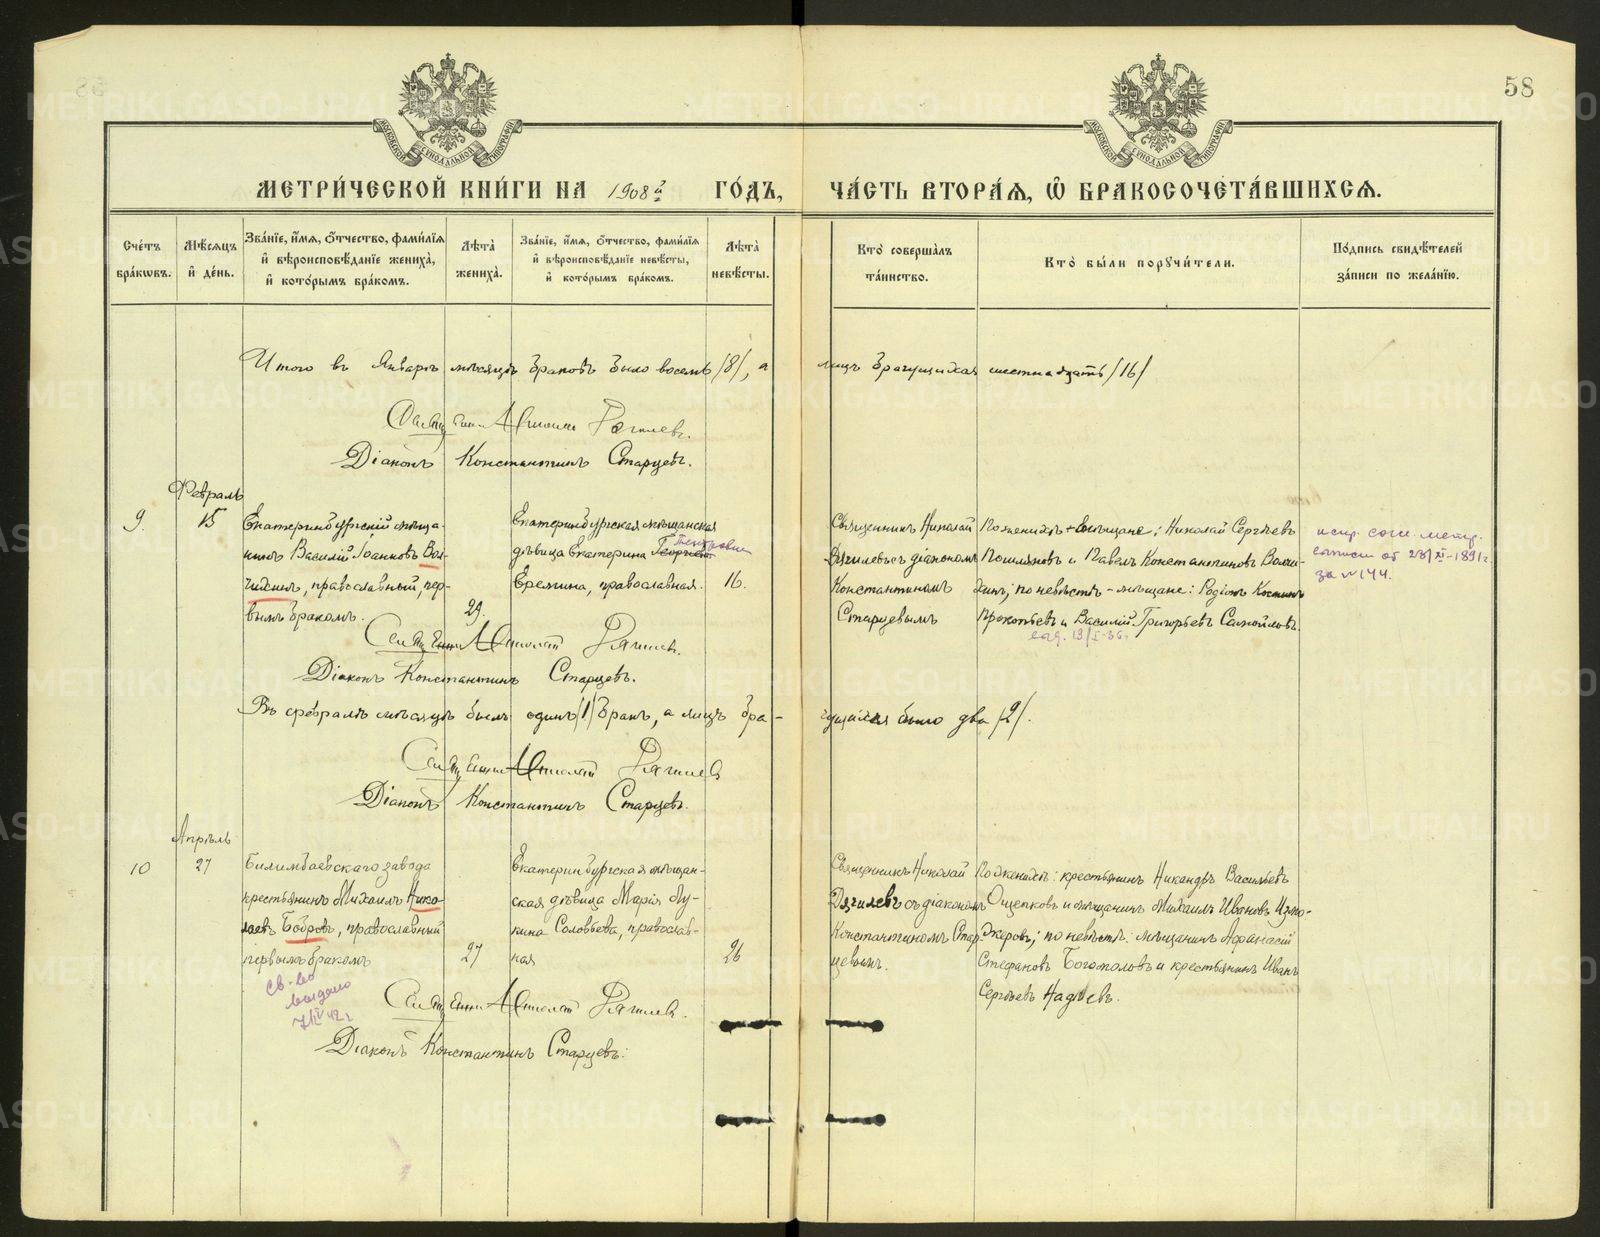 58
МЕТРИ́ЧЕСКОЙ КНИ́ГИ НА 1908 г. ГО́ДЪ, ЧА́СТЬ ВТОРА́Я, Ѽ БРАКОСОЧЕТА́ВШИХСЯ.
Сче́тъ бра́кѡвъ.
Мѣ́сяцъ и҆ де́нь.
Зва́нїе, и҆́мя, ѻ҆́тчество, фами́лїя и҆ вѣроисповѣ́данїе жениха̀, и҆ кото́рымъ бра́комъ.
Лѣ́та жениха̀.
Зва́нїе, и҆́мя, ѻ҆́тчество, фами́лїя и҆ вѣроисповѣ́данїе невѣ́сты, и҆ кото́рымъ бра́комъ.
Лѣ́та невѣ́сты.
Кто̀ соверша́лъ та́инство.
Кто̀ бы́ли порꙋчи́тели.
По́дпись свидѣ́телей за́писи по жела́нїю.
Итого въ Январѣ мѣсяцѣ браковъ было восемь /8/, а лицъ брачущихся шестнадцать /16/
Діаконъ Константинъ Старцевъ.
Февраль
9.
15
Екатеринбургскій мѣща-
нинъ Василій Іоанновъ Вол-
чихинъ, православный, пер-
вымъ бракомъ.
29.
Екатеринбургская мѣщанская
дѣвица Екатерина Георгіева
Петровна
Еремина, православная.
16.
Священникъ Николай
Дягилевъ съ діакономъ
Константиномъ
Старцевымъ
По женихѣ мѣщане: Николай Сергѣевъ
и Павелъ Константиновъ Волчи-
хинъ; по невѣстѣ - мѣщане: Родіонъ
Прокопьевъ и Василій Григорьевъ Самойловъ.
испр. согл. метр.
записи от 23/XI-1891 г.
за № 144.
Священникъ Николай Дягилевъ.
Діаконъ Константинъ Старцевъ.
Въ февралѣ мѣсяцѣ былъ одинъ /1/ бракъ, а лицъ бра-
чущихся было два /2/.
Священникъ Николай Дягилевъ
Діаконъ Константинъ Старцевъ.
Апрѣль
10
27
Билимбаевскаго завода
крестьянинъ Михаилъ Нико-
лаевъ Бобровъ, православный
первымъ бракомъ
27
Екатеринбургская мѣщан-
ская дѣвица Марія Лу-
кина Соловьева, православ-
ная
26
Священникъ Николай
Дягилевъ съ діакономъ
Константиномъ Стар-
цевымъ.
По женихѣ: крестьянинъ Никандръ Васильевъ
Ощепковъ и мѣщанинъ Михаилъ Ивановъ Измо-
жеровъ; по невѣстѣ: мѣщанинъ Афанасій
Стефановъ Богомоловъ и крестьянинъ Иванъ
Сергѣевъ Надѣевъ.
св-во
выдано
7/IV 42 г.
Священникъ Николай Дягилевъ.
Діаконъ Константинъ Старцевъ.
METRIKI.GASO-URAL.RU